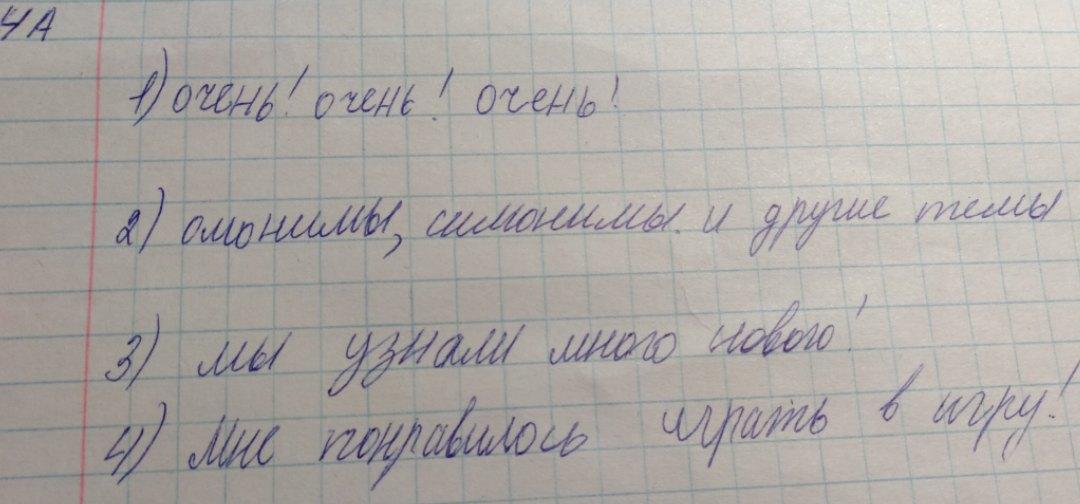 4А
1) очень! очень! очень!
2) омонимы, симонимы и другие темы
3) мы узнали много нового!
4) Мне понравилось играть в игру!